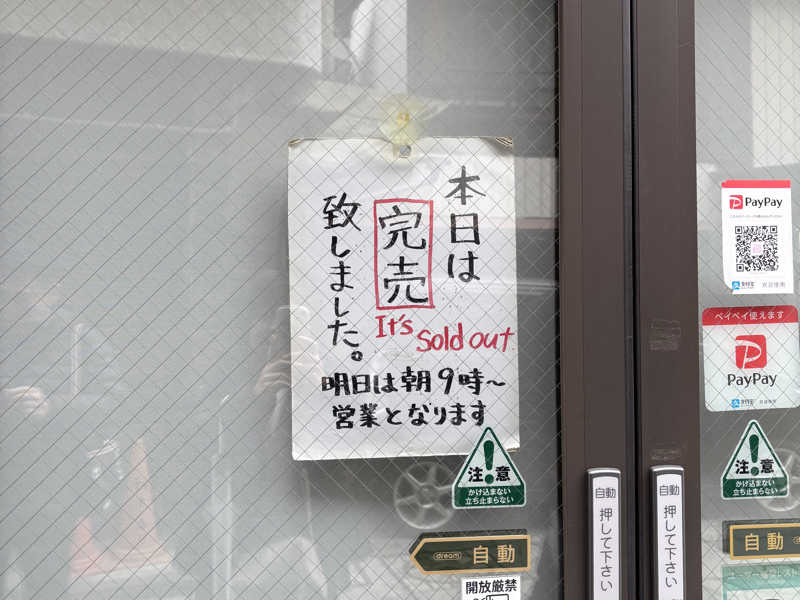 本日は
完売
致しました。
It's Sold out
明日は朝9時〜
営業となります
注意
かけ込まない
立ち止まらない
dream 自動
開放厳禁
自動
押して下さい
自動
押して下さい
PayPay
ペイペイ使えます
PayPay
注意
かけ込まない
立ち止まらない
自動